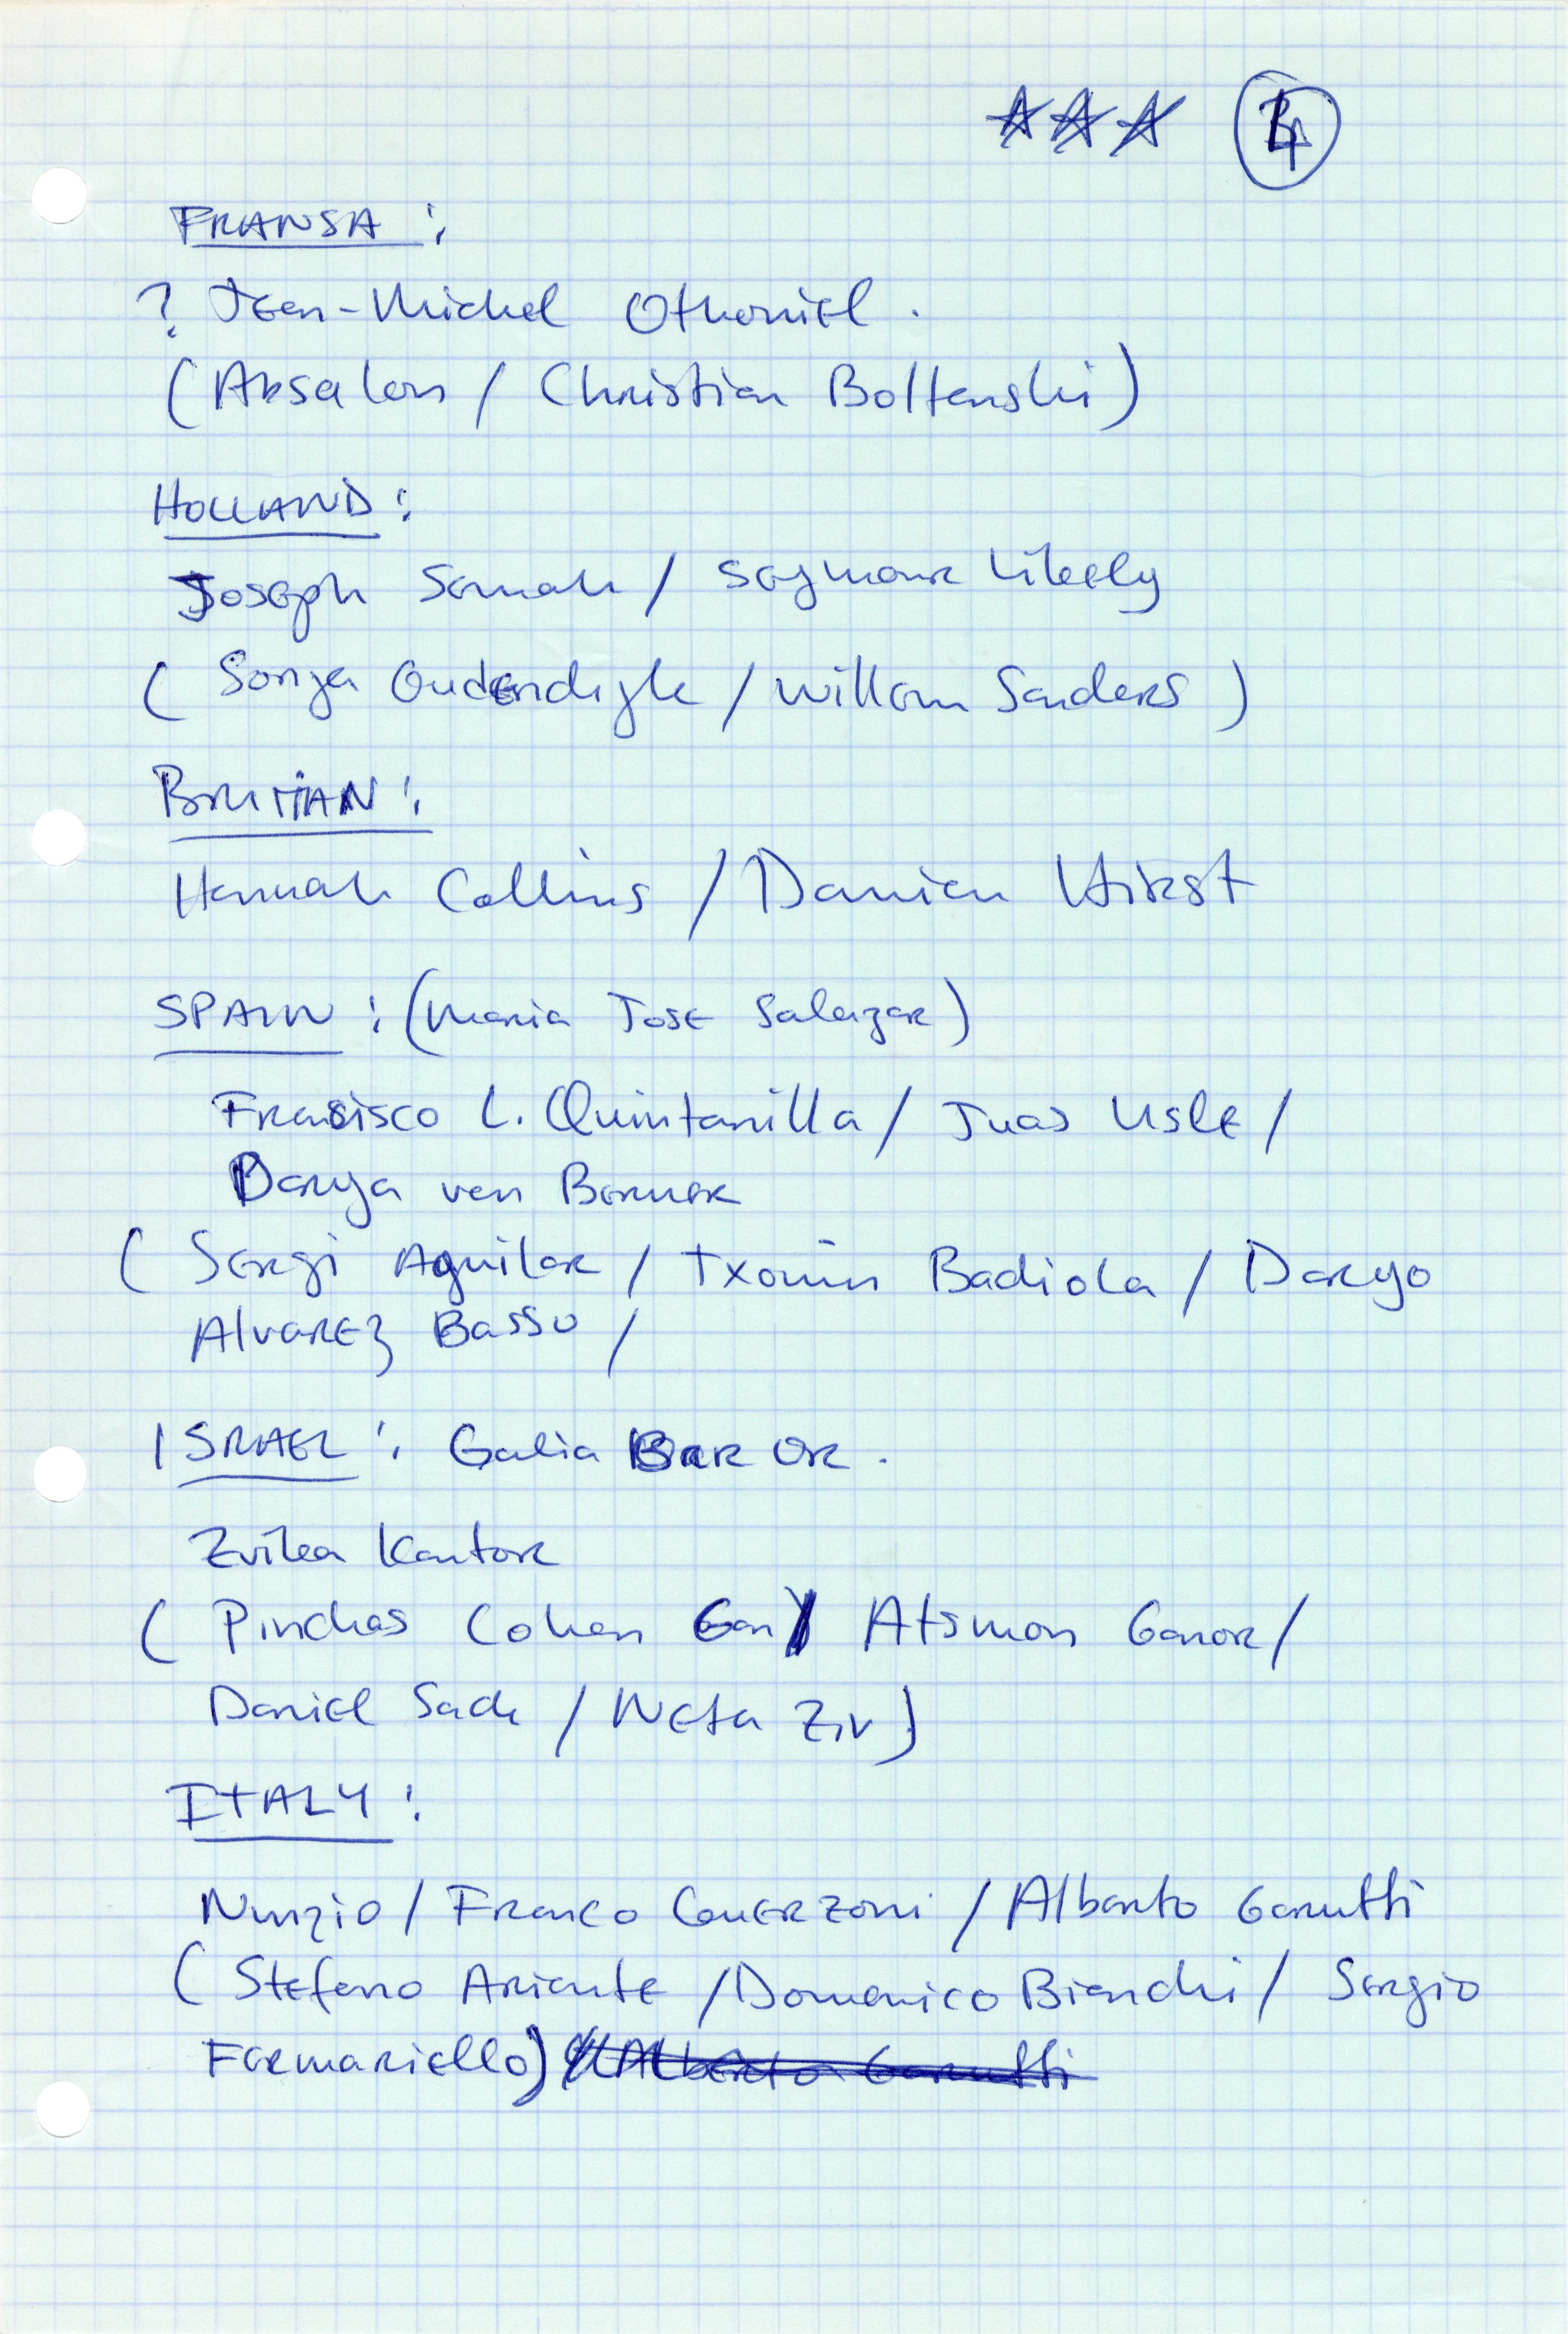 FRANSA :
? Jean-Michel Othoniel .
(Absalon / Christian Boltanski)
HOLLAND :
Joseph Semah / Seymour Likely
( Sonja Oudendijk / Willem Sanders )
Hannah Collins / Damien Hirst
SPAIN : (Maria Jose Salazar)
Francisco L. Quintanilla / Juas Usle /
Darya von Berner
( Sergi Aguilar / Txomin Badiola / Daryo
Alvarez Basso /
ISRAEL : Galia Bar Or .
Zvika Kantor
( Pinchas Cohen Gan / Atsmon Ganor /
Daniel Sack / Neta Ziv )
ITALY :
Nunzio / Franco Guerzoni / Alberto Garutti
( Stefano Arienté / Domenico Bianchi / Sergio
Fermariello) Alberto Garutti